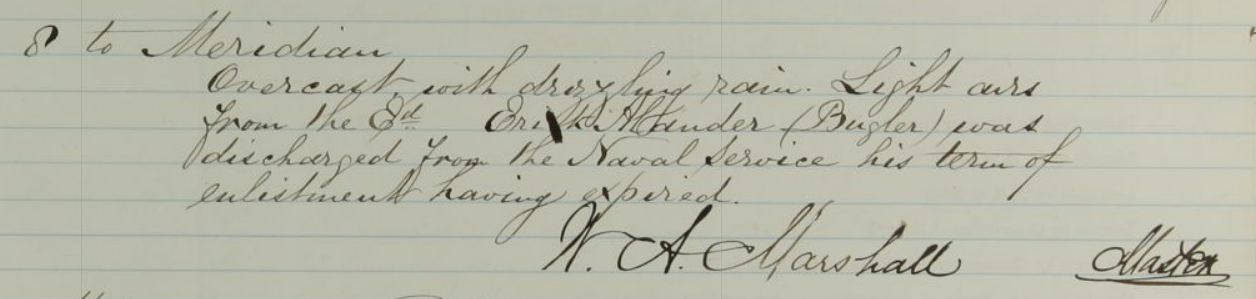 8 to Meridian
Overcast, with drizzling rain. Light airs
from the Ed Erik Alander (Bugler) was
discharged from the Naval Service his term of
enlistment having expired.
W. A. Marshall Master